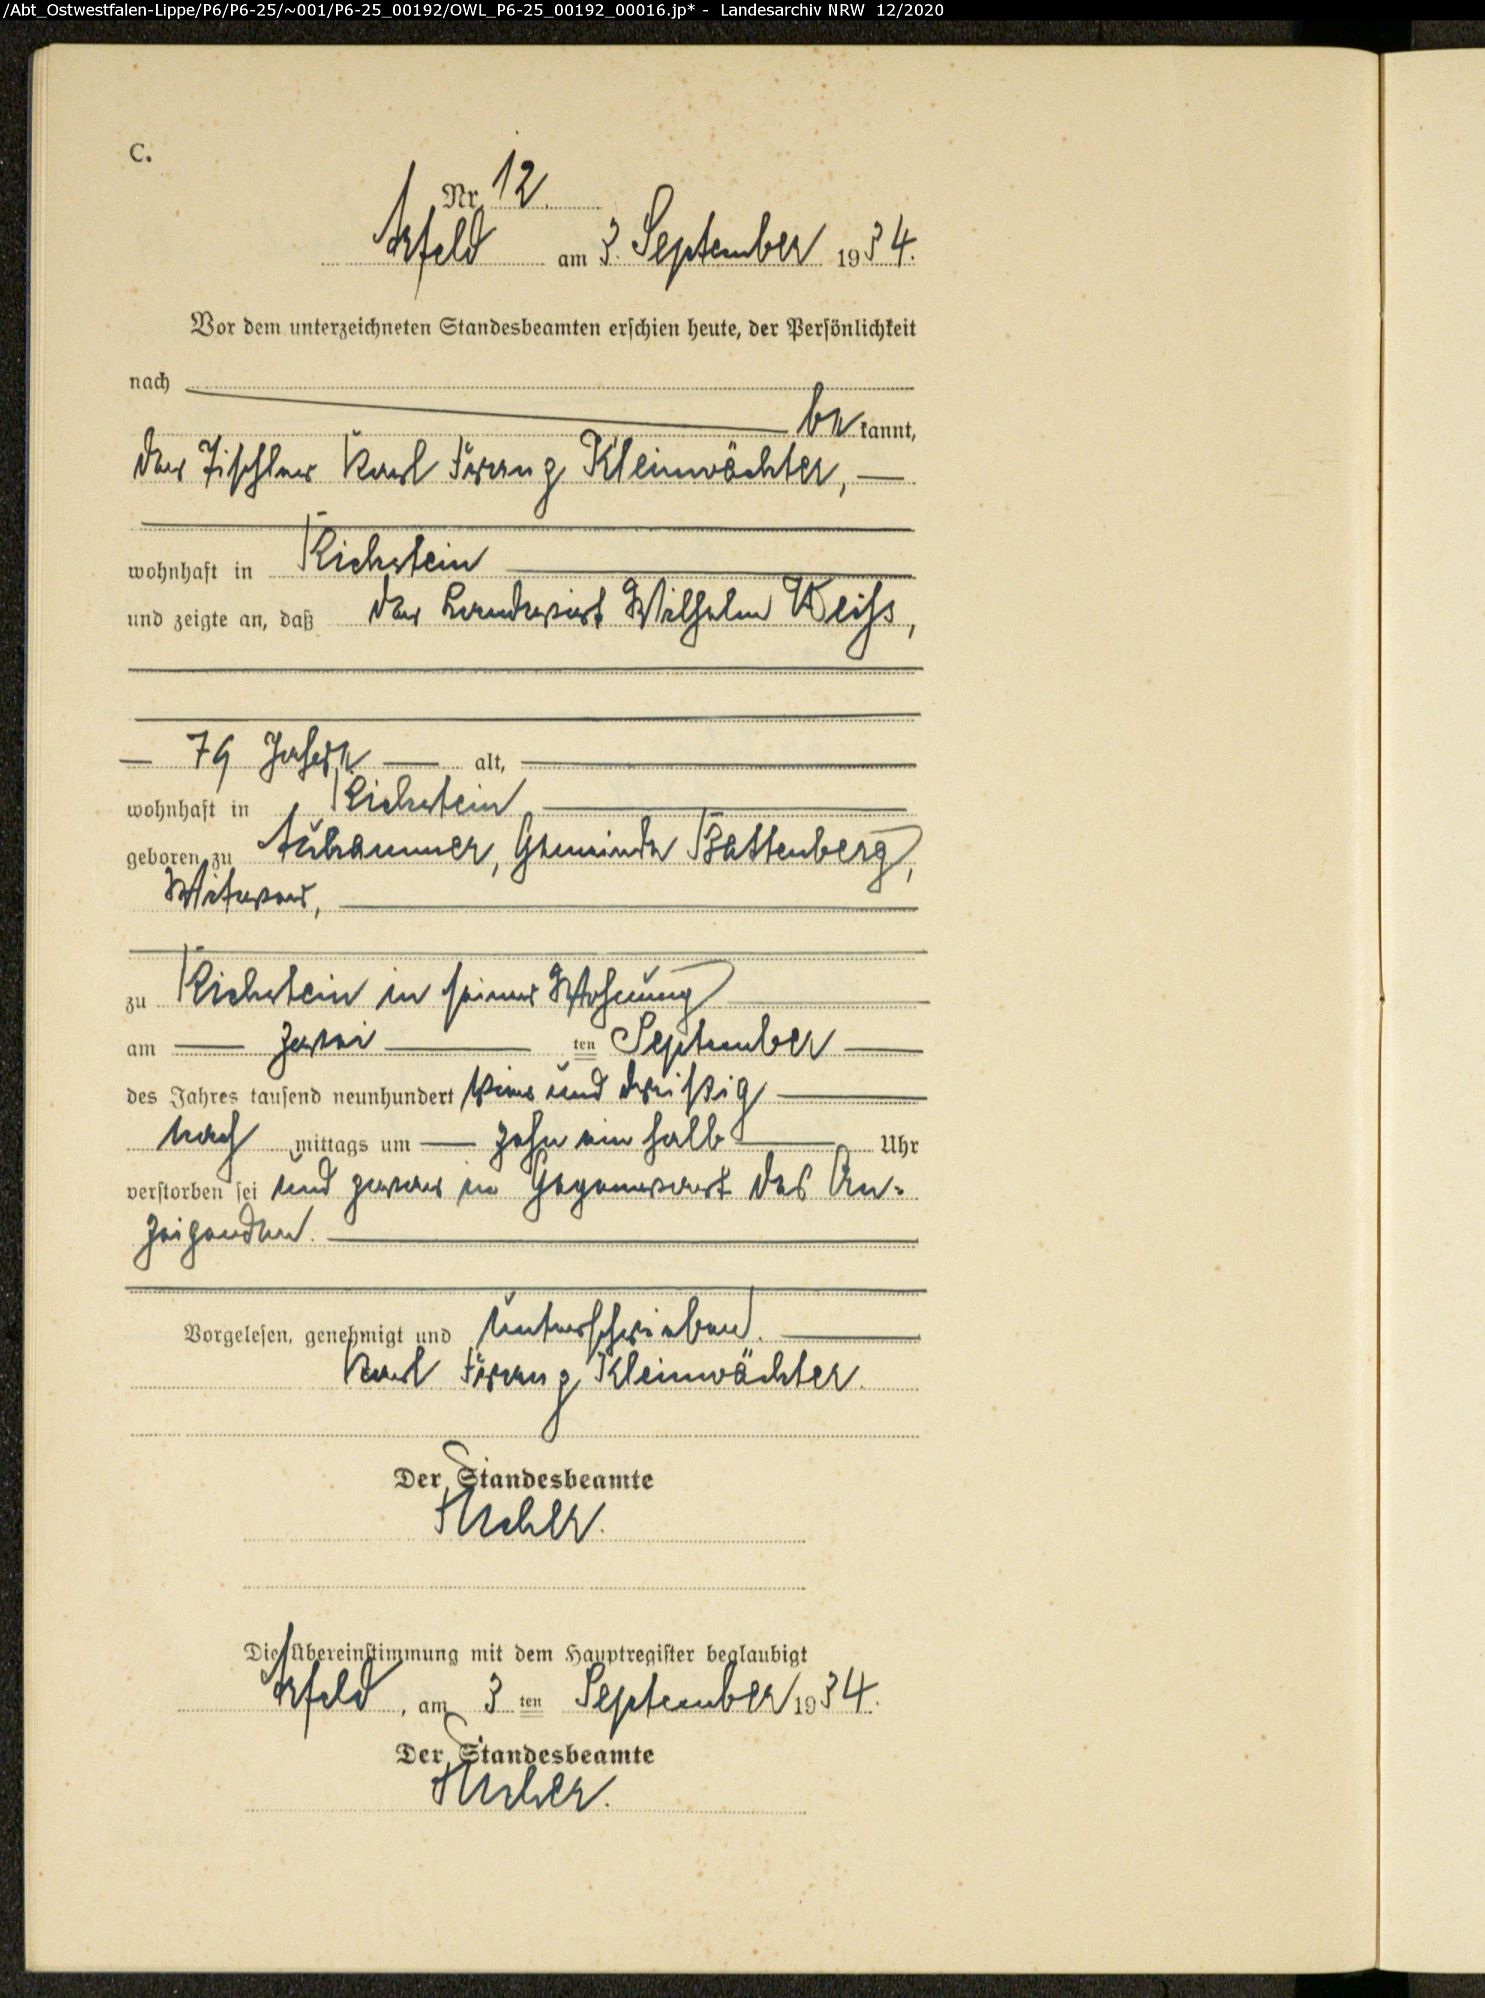 /Abt_Ostwestfalen-Lippe/P6/P6-25/~001/P6-25_00192/OWL_P6-25_00192_00016.jp* - Landesarchiv NRW 12/2020
C.
Nr. 12.
Arfeld am 3. September 1934.
Vor dem unterzeichneten Standesbeamten erschien heute, der Persönlichkeit
nach
be kannt,
der Tischler Karl Franz Kleinwächter,
wohnhaft in Richstein
und zeigte an, daß der Landwirt Wilhelm Weiß,
79 Jahre alt,
wohnhaft in Richstein
geboren zu Auhammer, Gemeinde Battenberg,
Witwer,
zu Richstein in seiner Wohnung
am zwei ten September
des Jahres tausend neunhundert vier und dreißig
nach mittags um zehn ein halb Uhr
verstorben sei und zwar in Gegenwart des An-
zeigenden.
Vorgelesen, genehmigt und unterschrieben.
Karl Franz Kleinwächter.
Der Standesbeamte
Die Übereinstimmung mit dem Hauptregister beglaubigt
Arfeld, am 3 ten September 1934.
Der Standesbeamte